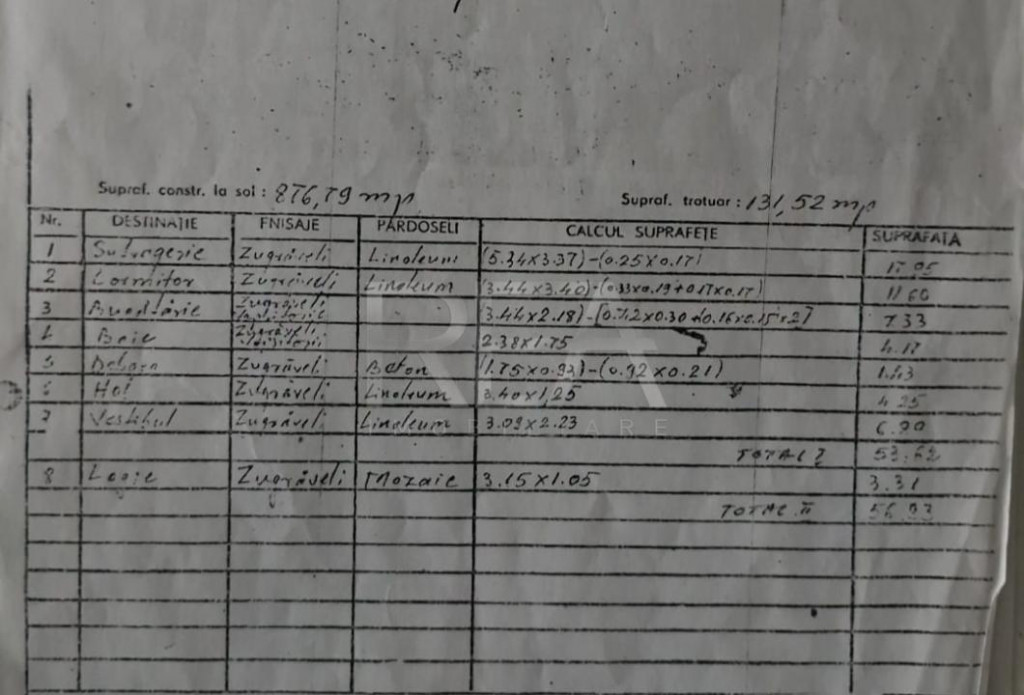 Supraf. constr. la sol : 876,79 mp Supraf. trotuar : 131,52 mp
Nr. DESTINAȚIE FNISAJE PARDOSELI CALCUL SUPRAFEȚE SUPRAFAȚA
1 Sufragerie Zugrăveli Linoleum (5.34x3.37)-(0.25x0.17) 17.95
2 Dormitor Zugrăveli Linoleum (3.44x3.40)-(0.33x0.19+0.17x0.17) 11.60
3 Bucătărie Zugrăveli (3.44x2.18)-[0.42x0.30+0.16x0.15x2] 7.33
4 Baie Zugrăveli 2.38x1.75 4.17
5 Debara Zugrăveli Beton (1.75x0.93)-(0.92x0.21) 1.43
6 Hol Zugrăveli Linoleum 3.40x1,25 4.25
7 Vestibul Zugrăveli Linoleum 3.09x2.23
TOTAL I 53.62
8 Logie Zugrăveli Mozaic 3.15x1.05 3.31
TOTAL II 56.93